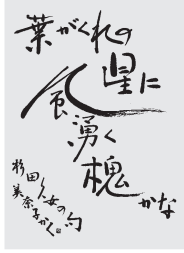 葉がくれの
星に
風湧く
槐
かな
杉田久女の句
美奈子かく